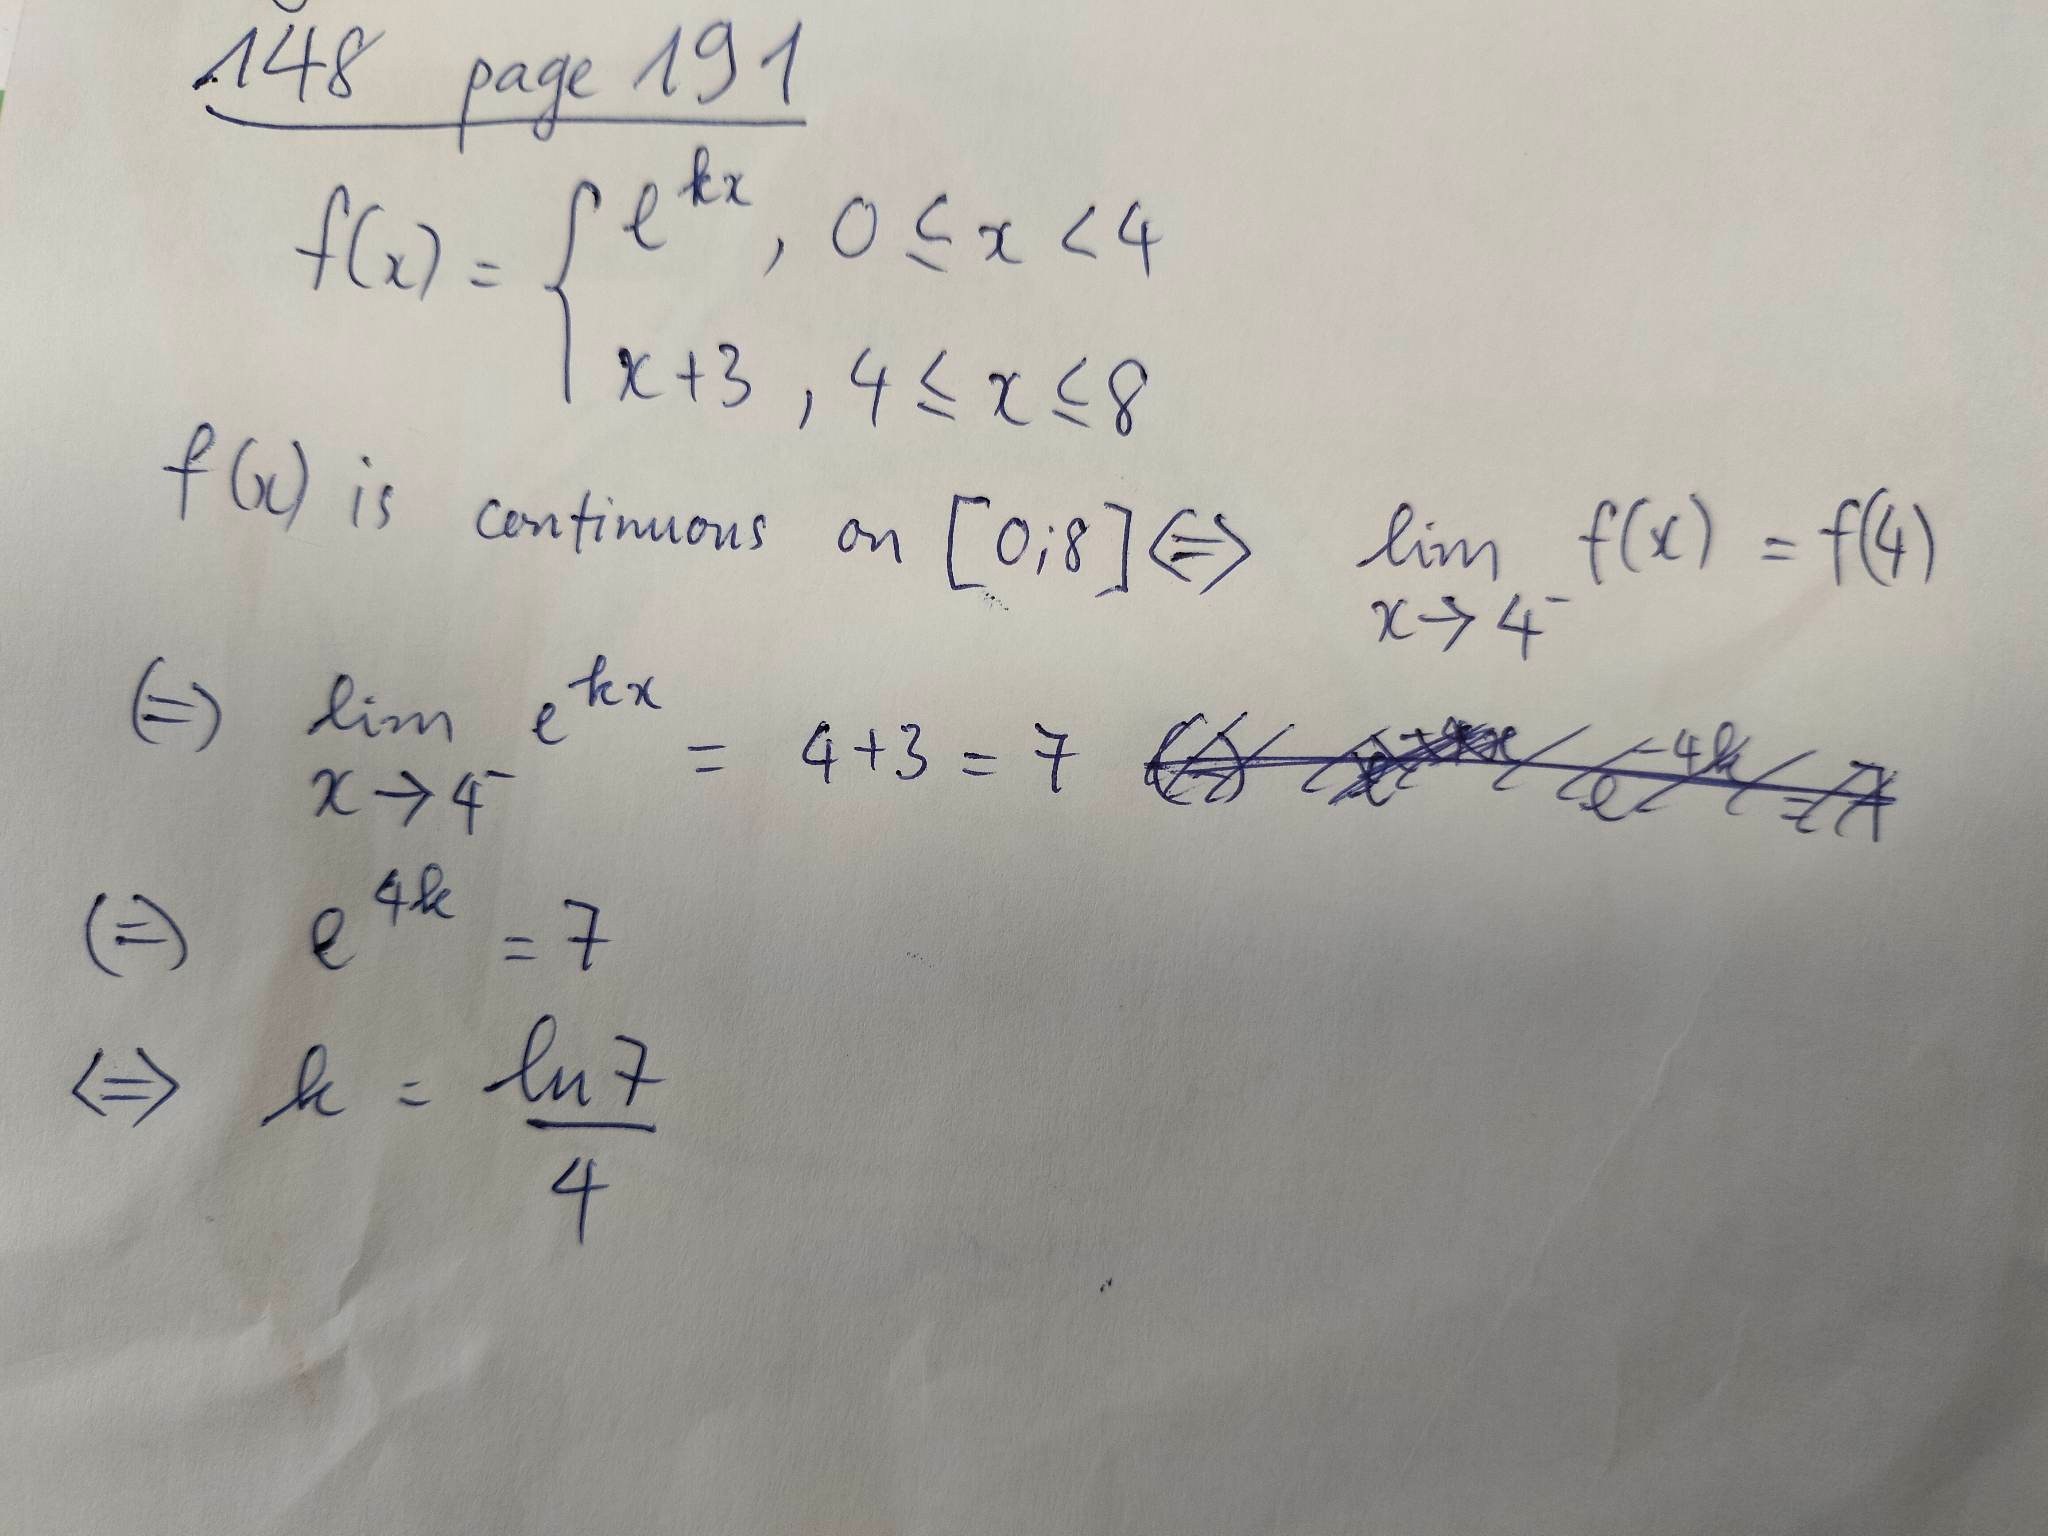 148 page 191
f(x) = { e^{kx}, 0 ≤ x < 4
x+3, 4 ≤ x ≤ 8
f(x) is continuous on [0;8] ⇔ lim_{x→4⁻} f(x) = f(4)
(=) lim_{x→4⁻} e^{kx} = 4+3 = 7
(=) e^{4k} = 7
⇔ k = ln7/4